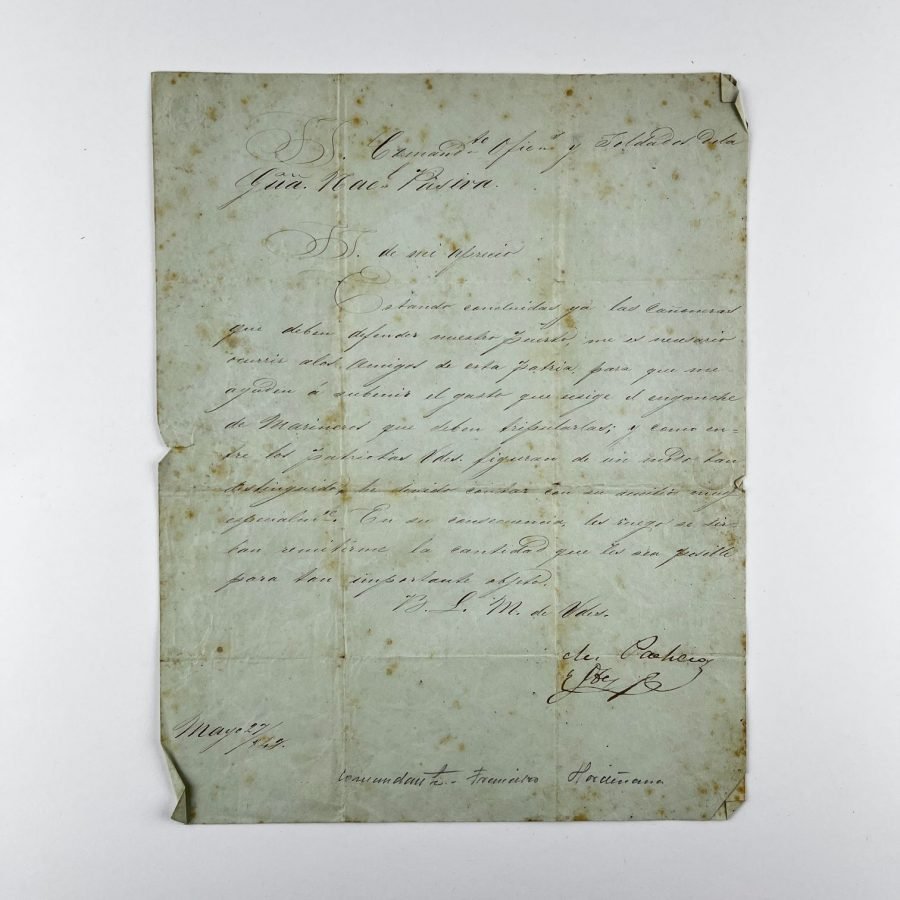 SS. Comand.te Ofic.s y Soldados dela
Gũa. Nac.l Pasiva.
SS. de mi aprecio
Estando concluidas yá las Cañoneras
que deben defender nuestro Puerto, me es necesario
ocurrir alos Amigos de esta Patria para que me
ayuden á subenir el gasto que esige el enganche
de Marineros que deben tripularlas; y como en=
tre los Patriotas Vdes. figuran de un modo tan
distinguido, he devido contar con su ausilio muy
especialm.te En su consecuencia, les ruego se sir=
ban remitirme la cantidad que les sea posible
para tan importante objeto.
B. L. M. de Vdes.
Pacheco
y
Mayo 27/
Comandante Francisco Hordeñana